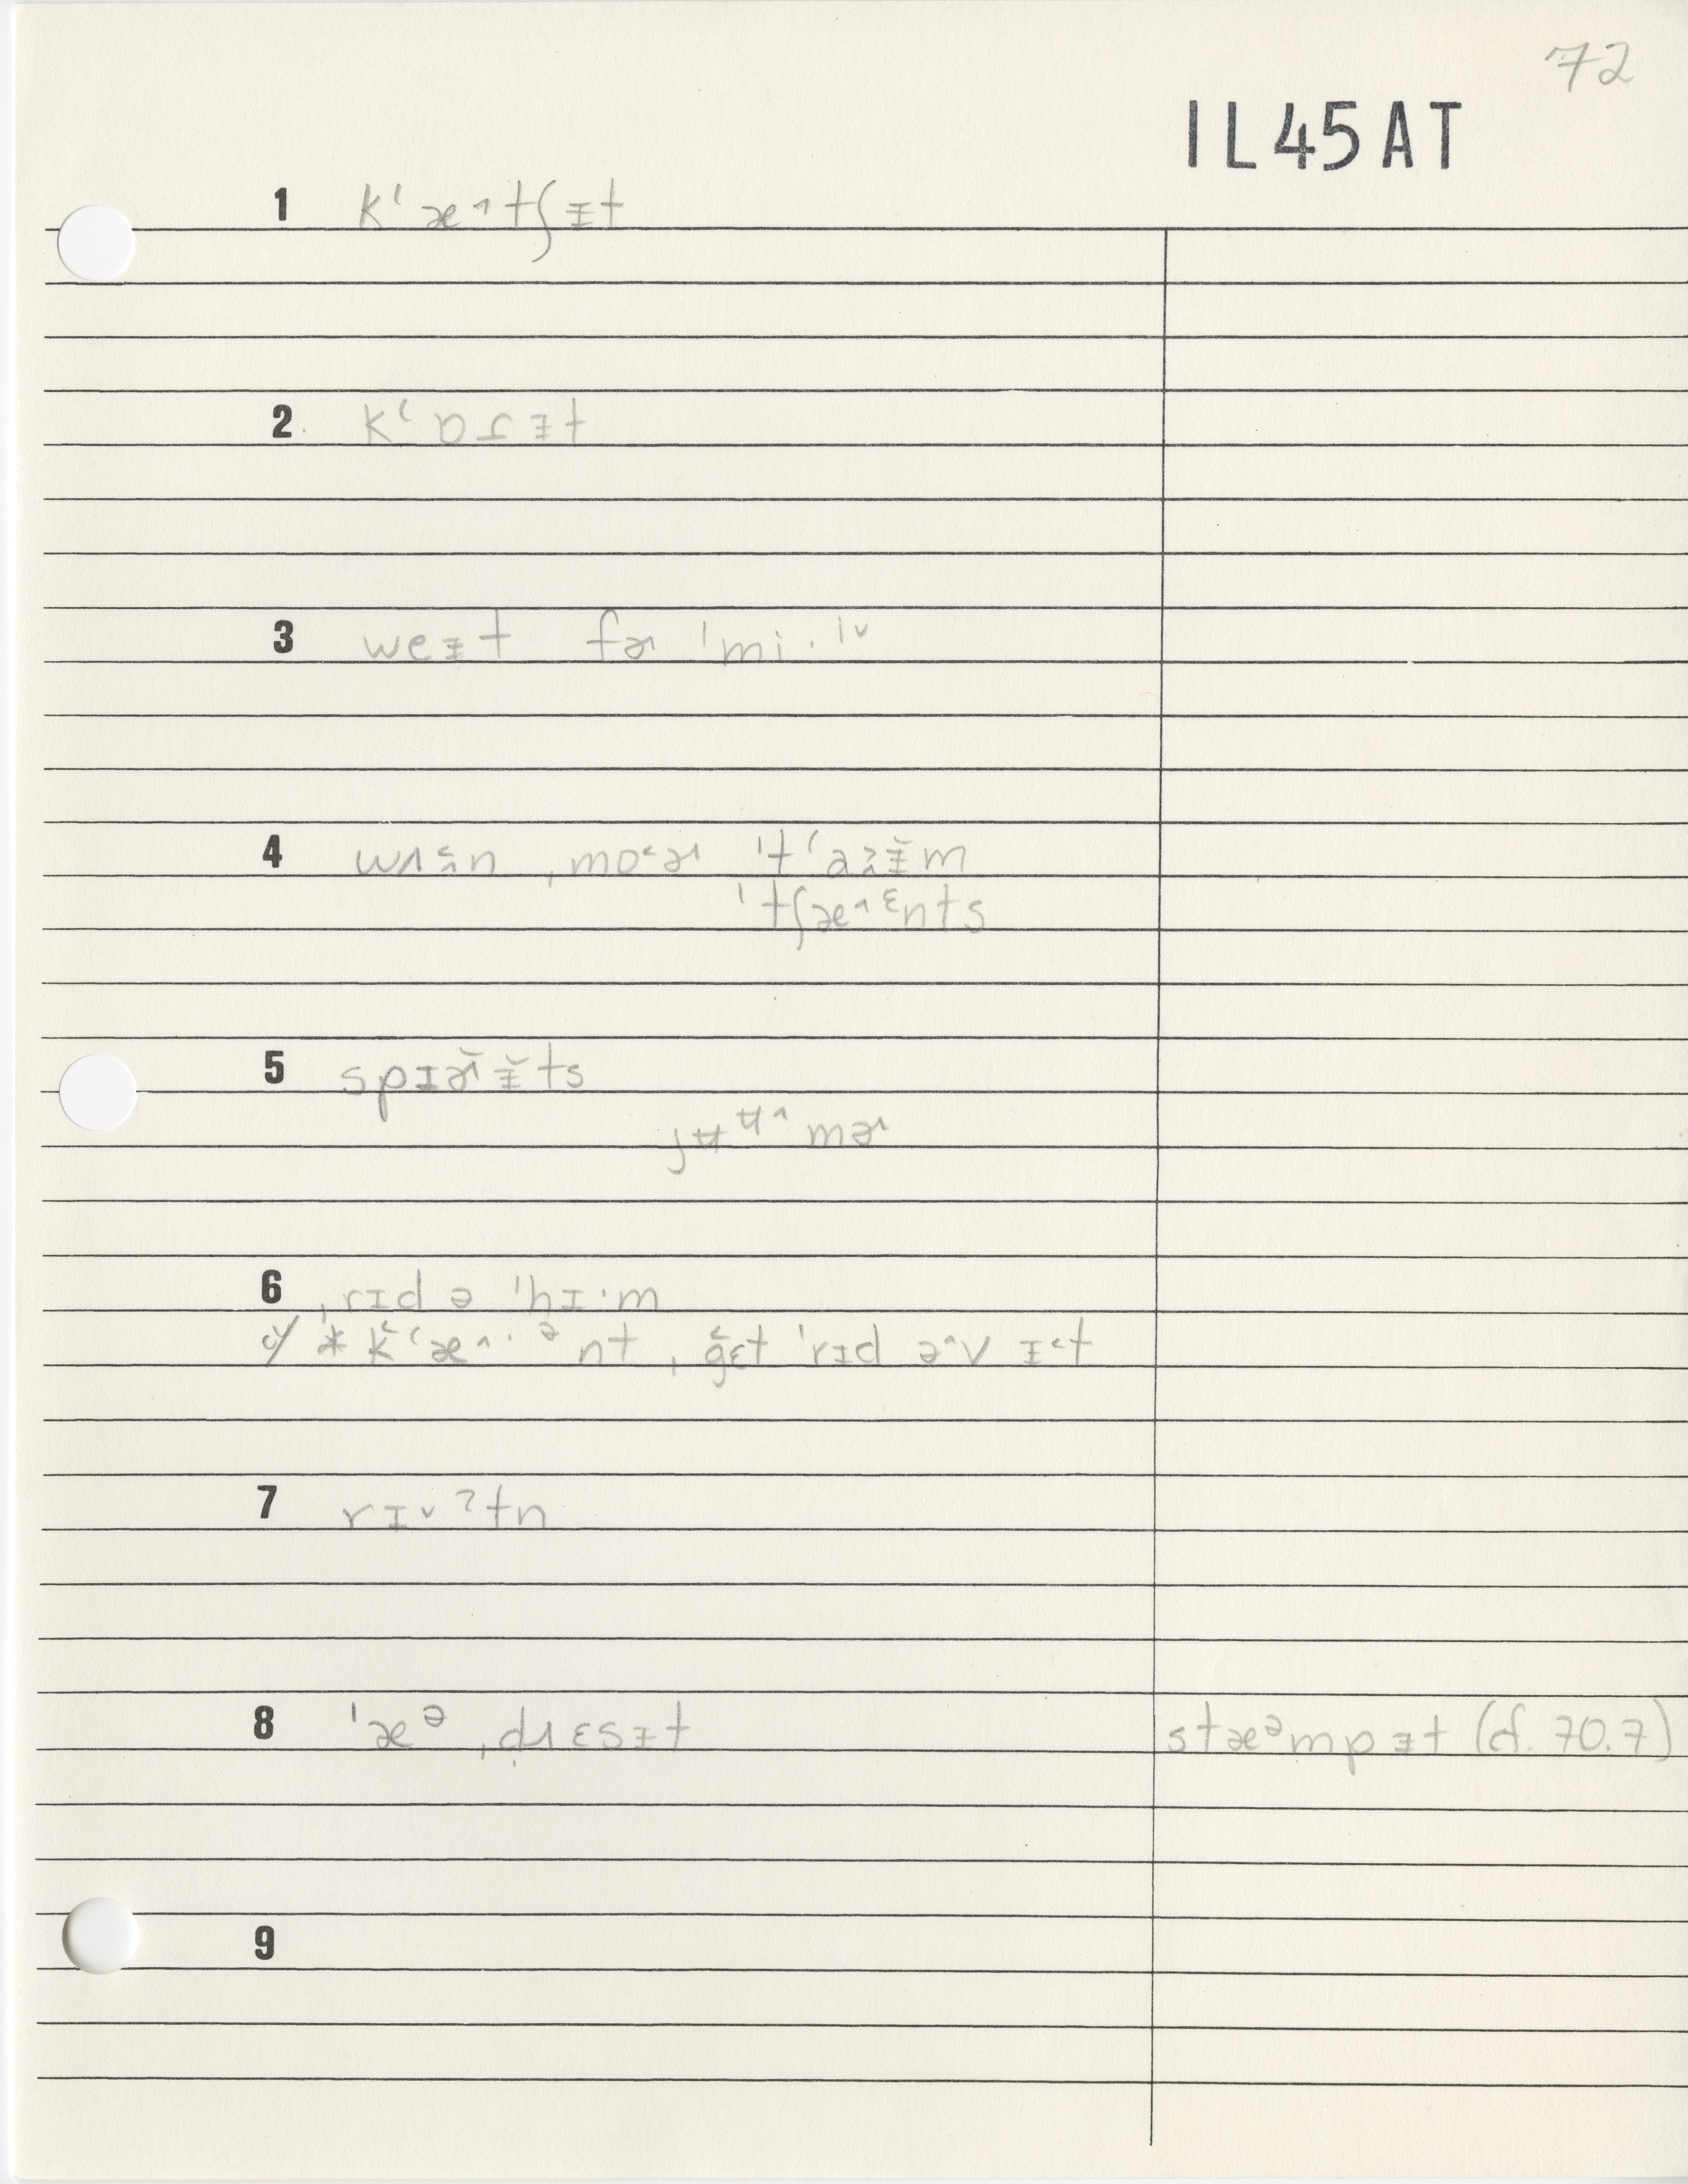 72
IL45AT
1 kʻæ˄tʃᵻt
2 kʻɒɾᵻt
3 weᵻt fɚ ˈmi·ⁱ˅
4 wʌ˂̭n ˌmo˂ɚ ˈtʻa˃̭ᵻ̆m
ˈtʃæ˄ᵋnts
5 spɪɚ̆ᵻ̆ts
jʉᶶ˄mɚ
6 ˌrɪd ə ˈhɪ·m
c/ * k̆ʻæ˄·ᵊnt ˌğɛt ˈrɪd ə˄v ɪ˂t
7 rɪ˅ʔtn
8 ˈæᵊˌdɹɛsᵻt stæᵊmpᵻt (cf. 70.7)
9